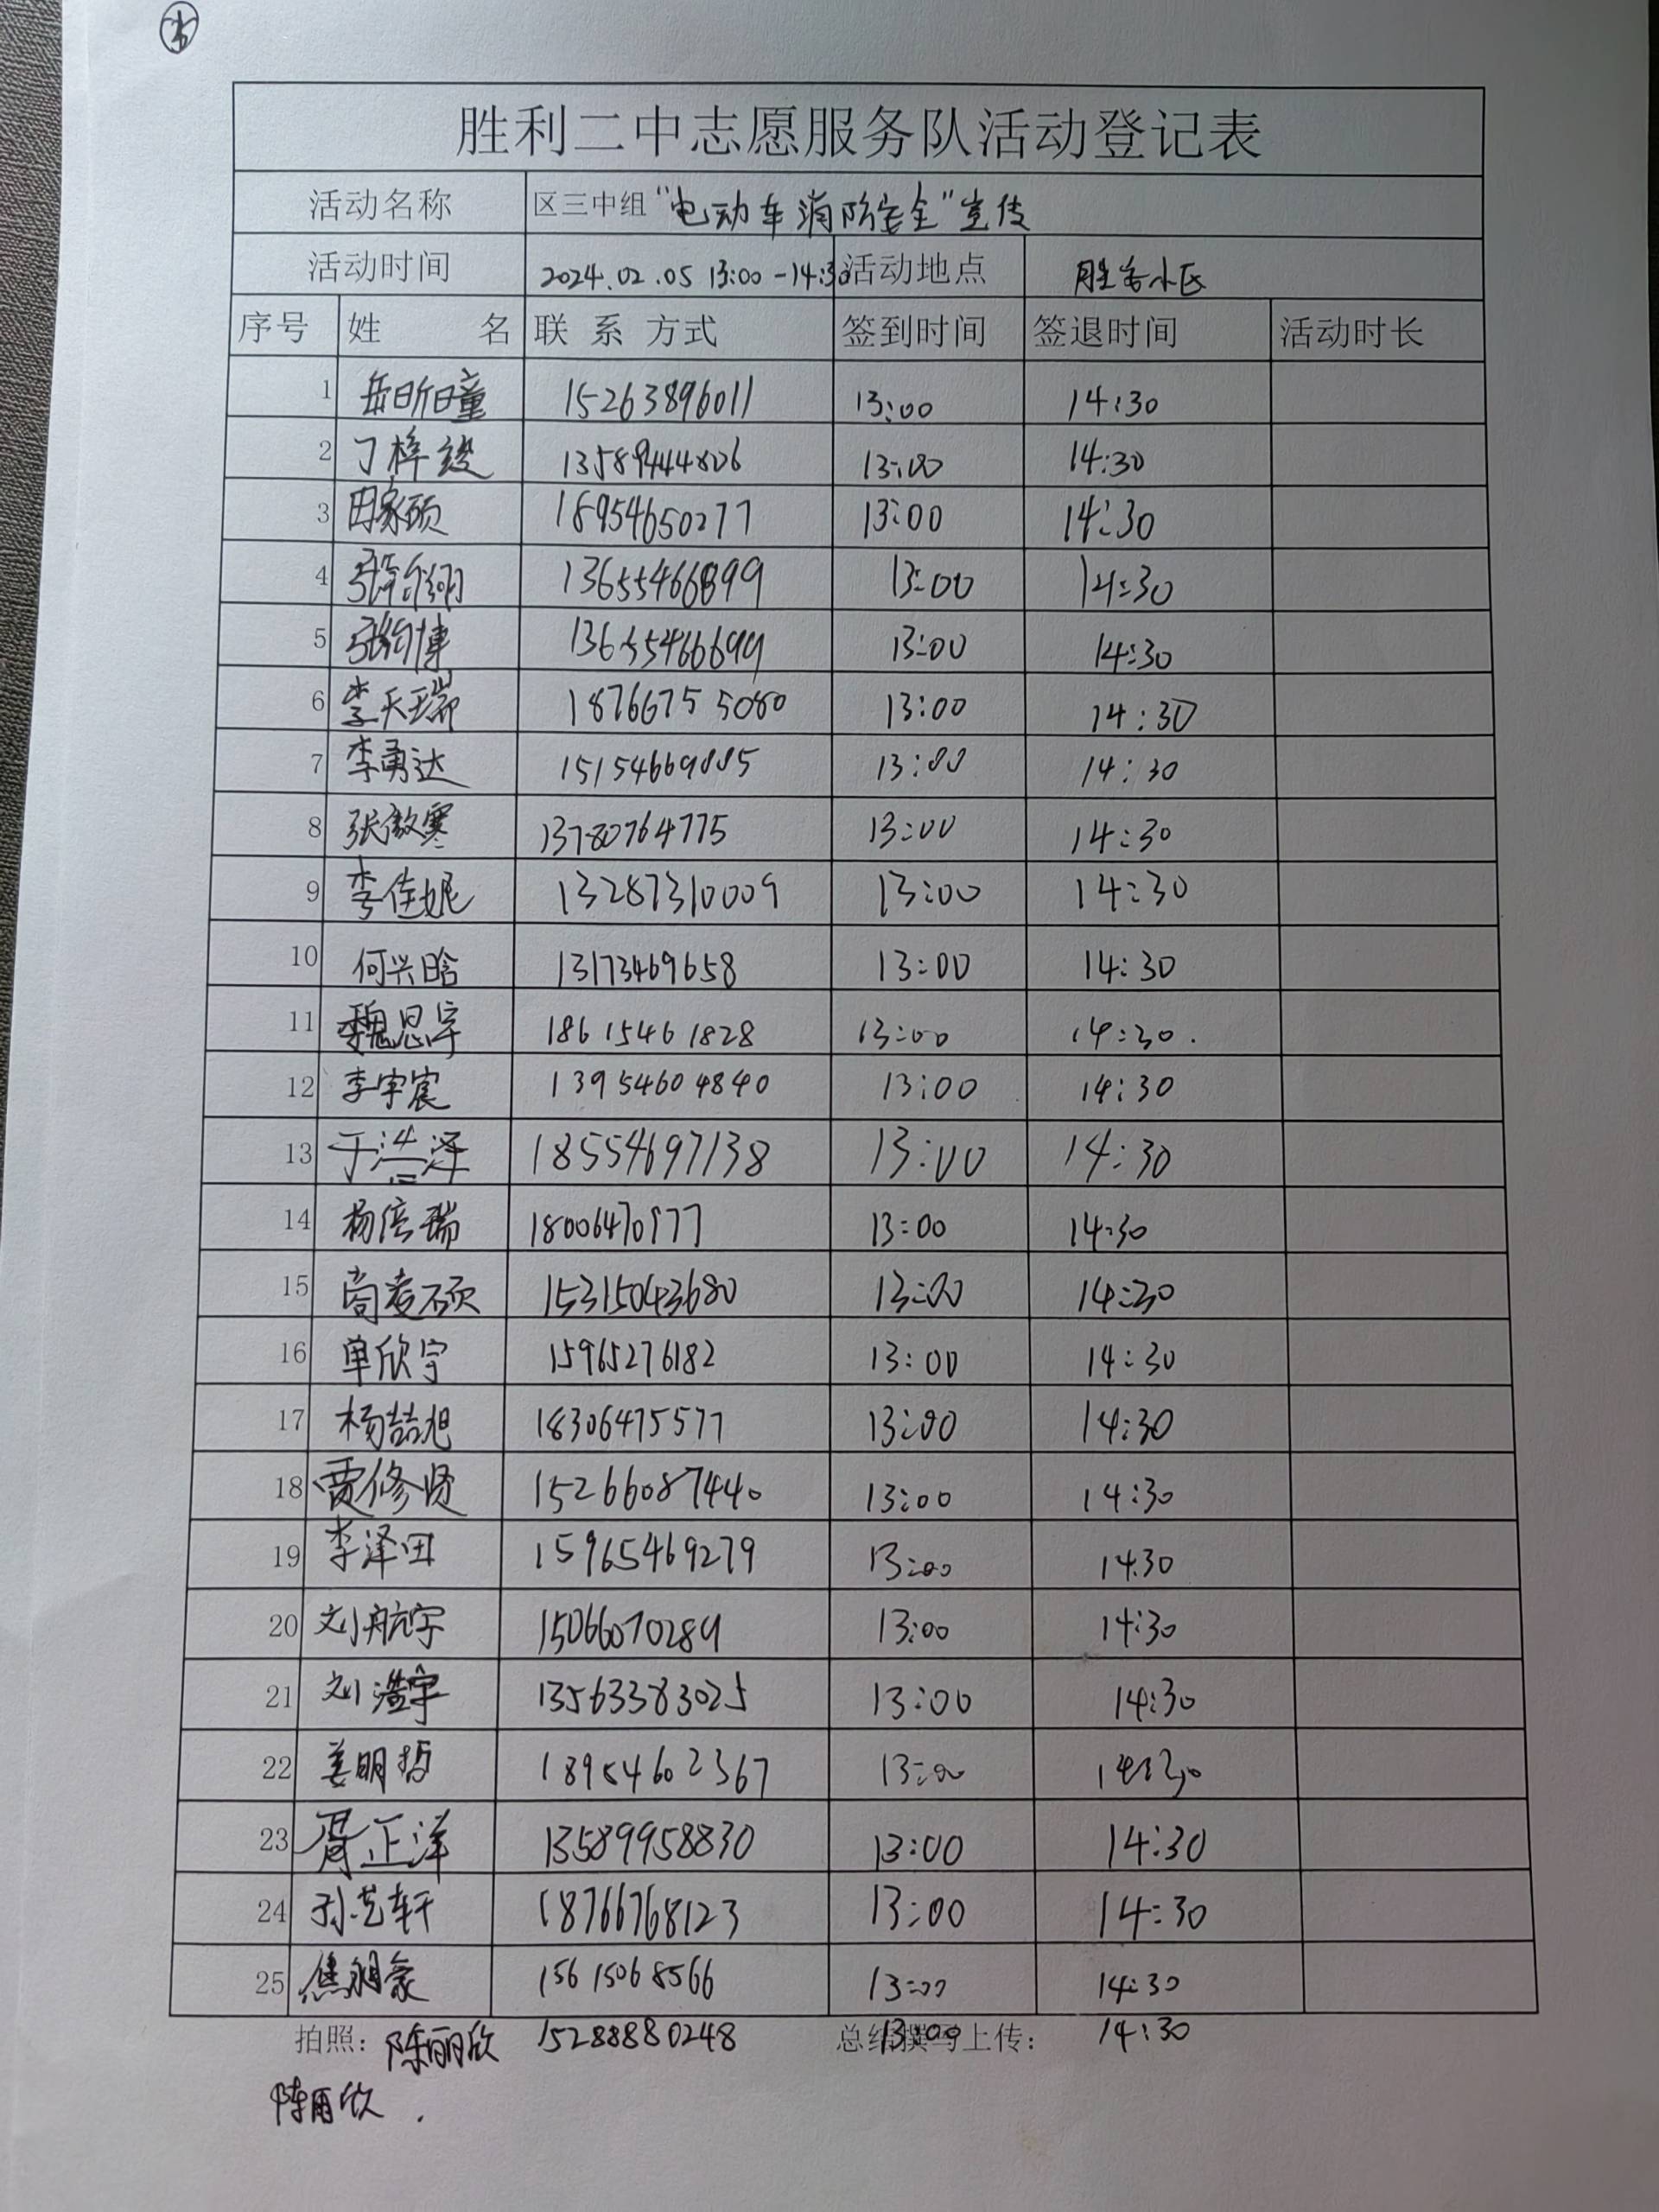 胜利二中志愿服务队活动登记表
活动名称 区三中组"电动车消防安全"宣传
活动时间 2024.02.05 13:00-14:30 活动地点 胜寺小区
序号 姓 名 联 系 方式 签到时间 签退时间 活动时长
1 岳昕曈 15263896011 13:00 14:30
2 丁梓竣 13589444806 13:00 14:30
3 田家硕 18954650277 13:00 14:30
4 13655466899 13:00 14:30
5 张钧博 13655466699 13:00 14:30
6 李天瑞 18766755080 13:00 14:30
7 李勇达 15154669885 13:00 14:30
8 张傲寒 13780764775 13:00 14:30
9 李佳妮 13287310009 13:00 14:30
10 何兴晗 13173469658 13:00 14:30
11 魏思宇 186 1546 1828 13:00 14:30.
12 李宇宸 13954604840 13:00 14:30
13 于浩泽 18554697138 13:00 14:30
14 杨倍瑞 18006470977 13:00 14:30
15 尚麦硕 15315043680 13:00 14:30
16 单欣宇 15965276182 13:00 14:30
17 杨喆旭 18306475577 13:00 14:30
18 贾修贤 15266087440 13:00 14:30
19 李泽田 15965469279 13:00 14:30
20 刘航宇 15066070289 13:00 14:30
21 刘浩宇 13563383025 13:00 14:30
22 姜明哲 18954602367 13:00 14:30
23 胥正洋 13589958830 13:00 14:30
24 孙艺轩 18766768123 13:00 14:30
25 焦润豪 156 1506 8566 13:00 14:30
拍照: 陈丽欣 15288880248 总结撰写上传: 13:00 14:30
陈雨欣.